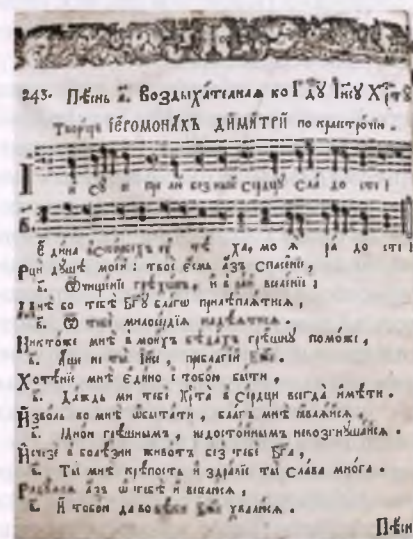 243. Пѣснь а҃. Воздыха́телная ко Гд҇у Іи҃су Хр҇ту
Творе́цъ іеромона́хъ дими́трїй по краестро́чїю.
І Су́ и прелюбезный Се́рдцу Сла́ досте!
Е҆ди́на ха, мо я ра досте!
Рцы души́ мое́й: твое́ е҆́смь а҆́зъ спасе́нїе,
в҃. Ѡ҆чище́нїе грѣхо́въ, и в вселе́нїе;
Мнѣ́ бо тебѣ́ Бг҃у бла́го прилѣпля́тися,
в҃. Ѿ тебѐ милосе́рдїя надѣ́ятися.
Никто́же мнѣ̀ в мои́хъ бѣда́хъ грѣ́шну помо́же,
в҃. А҆́ще не ты̀ І҆и҃се, пребл҃гі́й Бж҃е.
Хотѣ́нїе мнѣ̀ е҆ди́но с тобо́ю бы́ти,
в҃. Да́ждь ми тебѐ Хр҇та̀ в Се́рдци всегда̀ и҆мѣ́ти.
И҆зво́ль во мнѣ̀ ѡ҆бита́ти, бла́гъ мнѣ̀ ꙗ҆вля́йся,
в҃. Мно́ю грѣ́шнымъ, недосто́йнымъ невозгнуша́йся.
И҆счезѐ в болѣ́зни живо́тъ без тебѐ Бг҃а,
в҃. Ты̀ мнѣ̀ крѣ́пость и҆ здра́вїе ты̀ Сла́ва мно́га.
а҆́зъ ѡ҆ тебѣ̀ и҆
в҃. И҆ тобо́ю да во вѣ́ки Бж҃е хвалю́ся.
Пѣ́сн